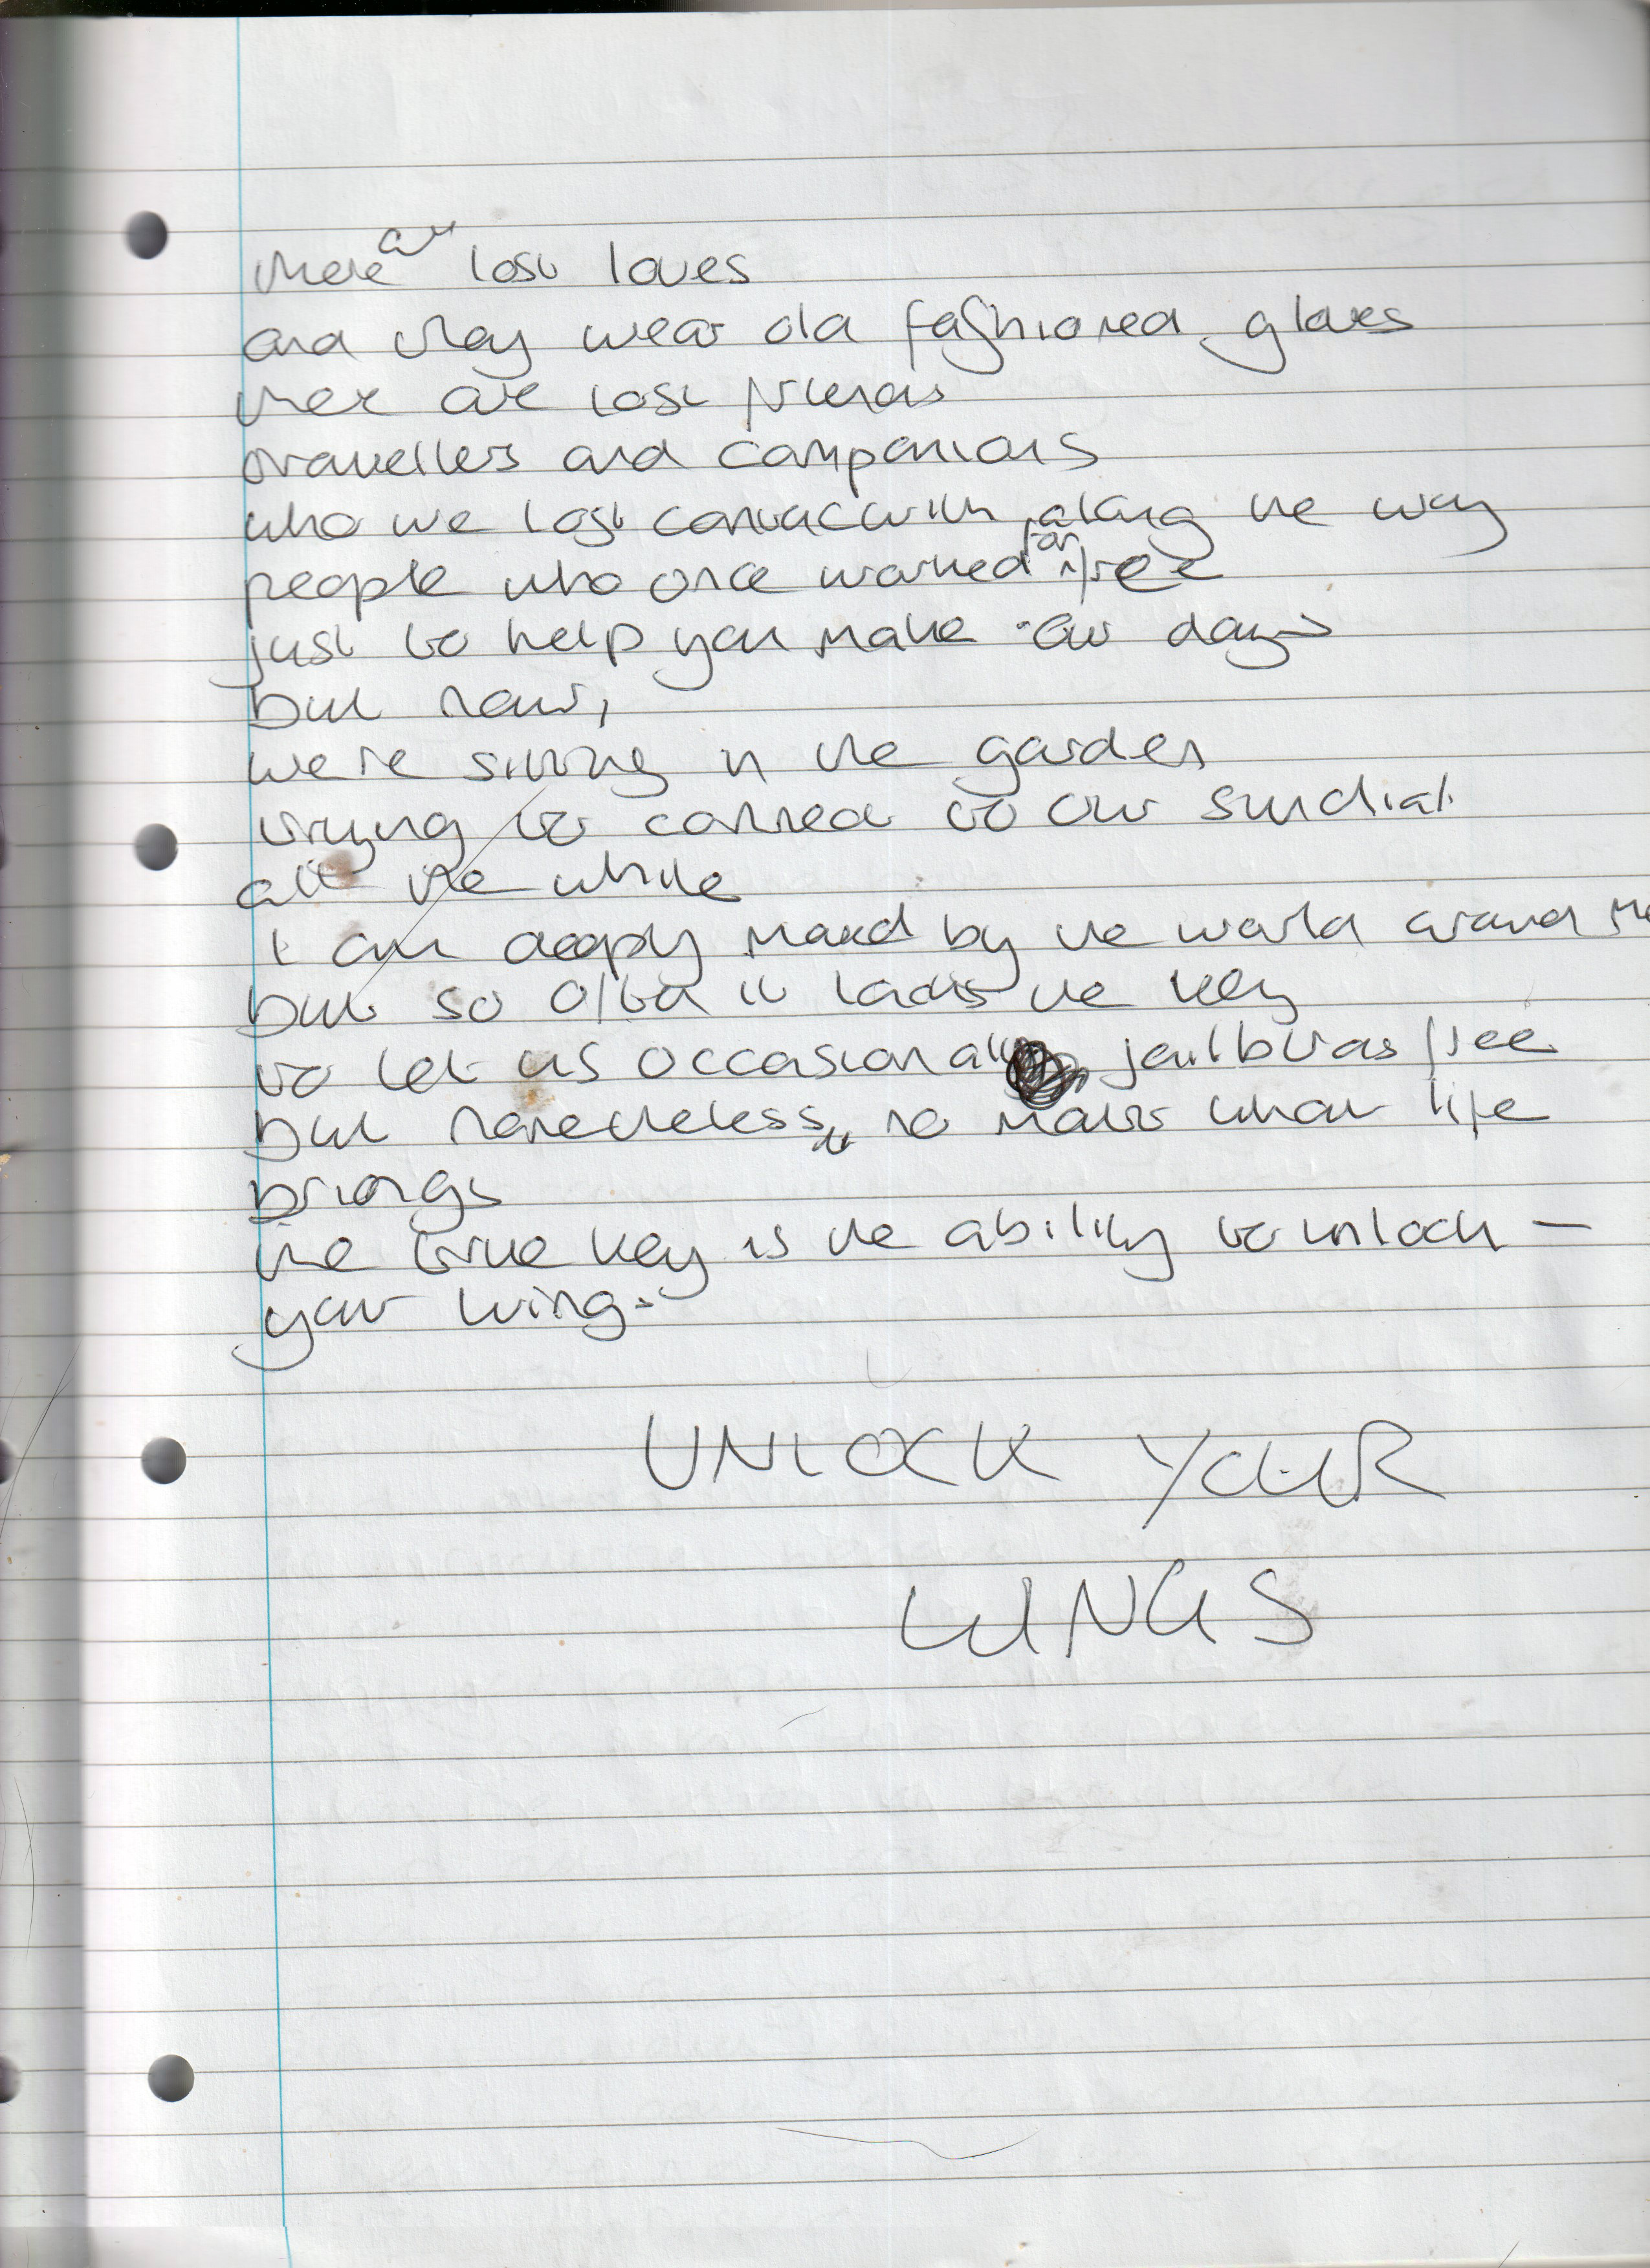 there are lost loves
and they wear old fashioned gloves
there are lost friends
travellers and companions
who we lost contact with along the way
people who once worked for free
just to help you make our days
but now,
we're sitting in the garden
trying to connect to our sundial
all the while
I am deeply moved by the world around me
but so often it lacks the key
to let us occasionally free
but nonetheless, no matter what life
brings
the true key is the ability to unlock –
your wings.
UNLOCK YOUR
WINGS